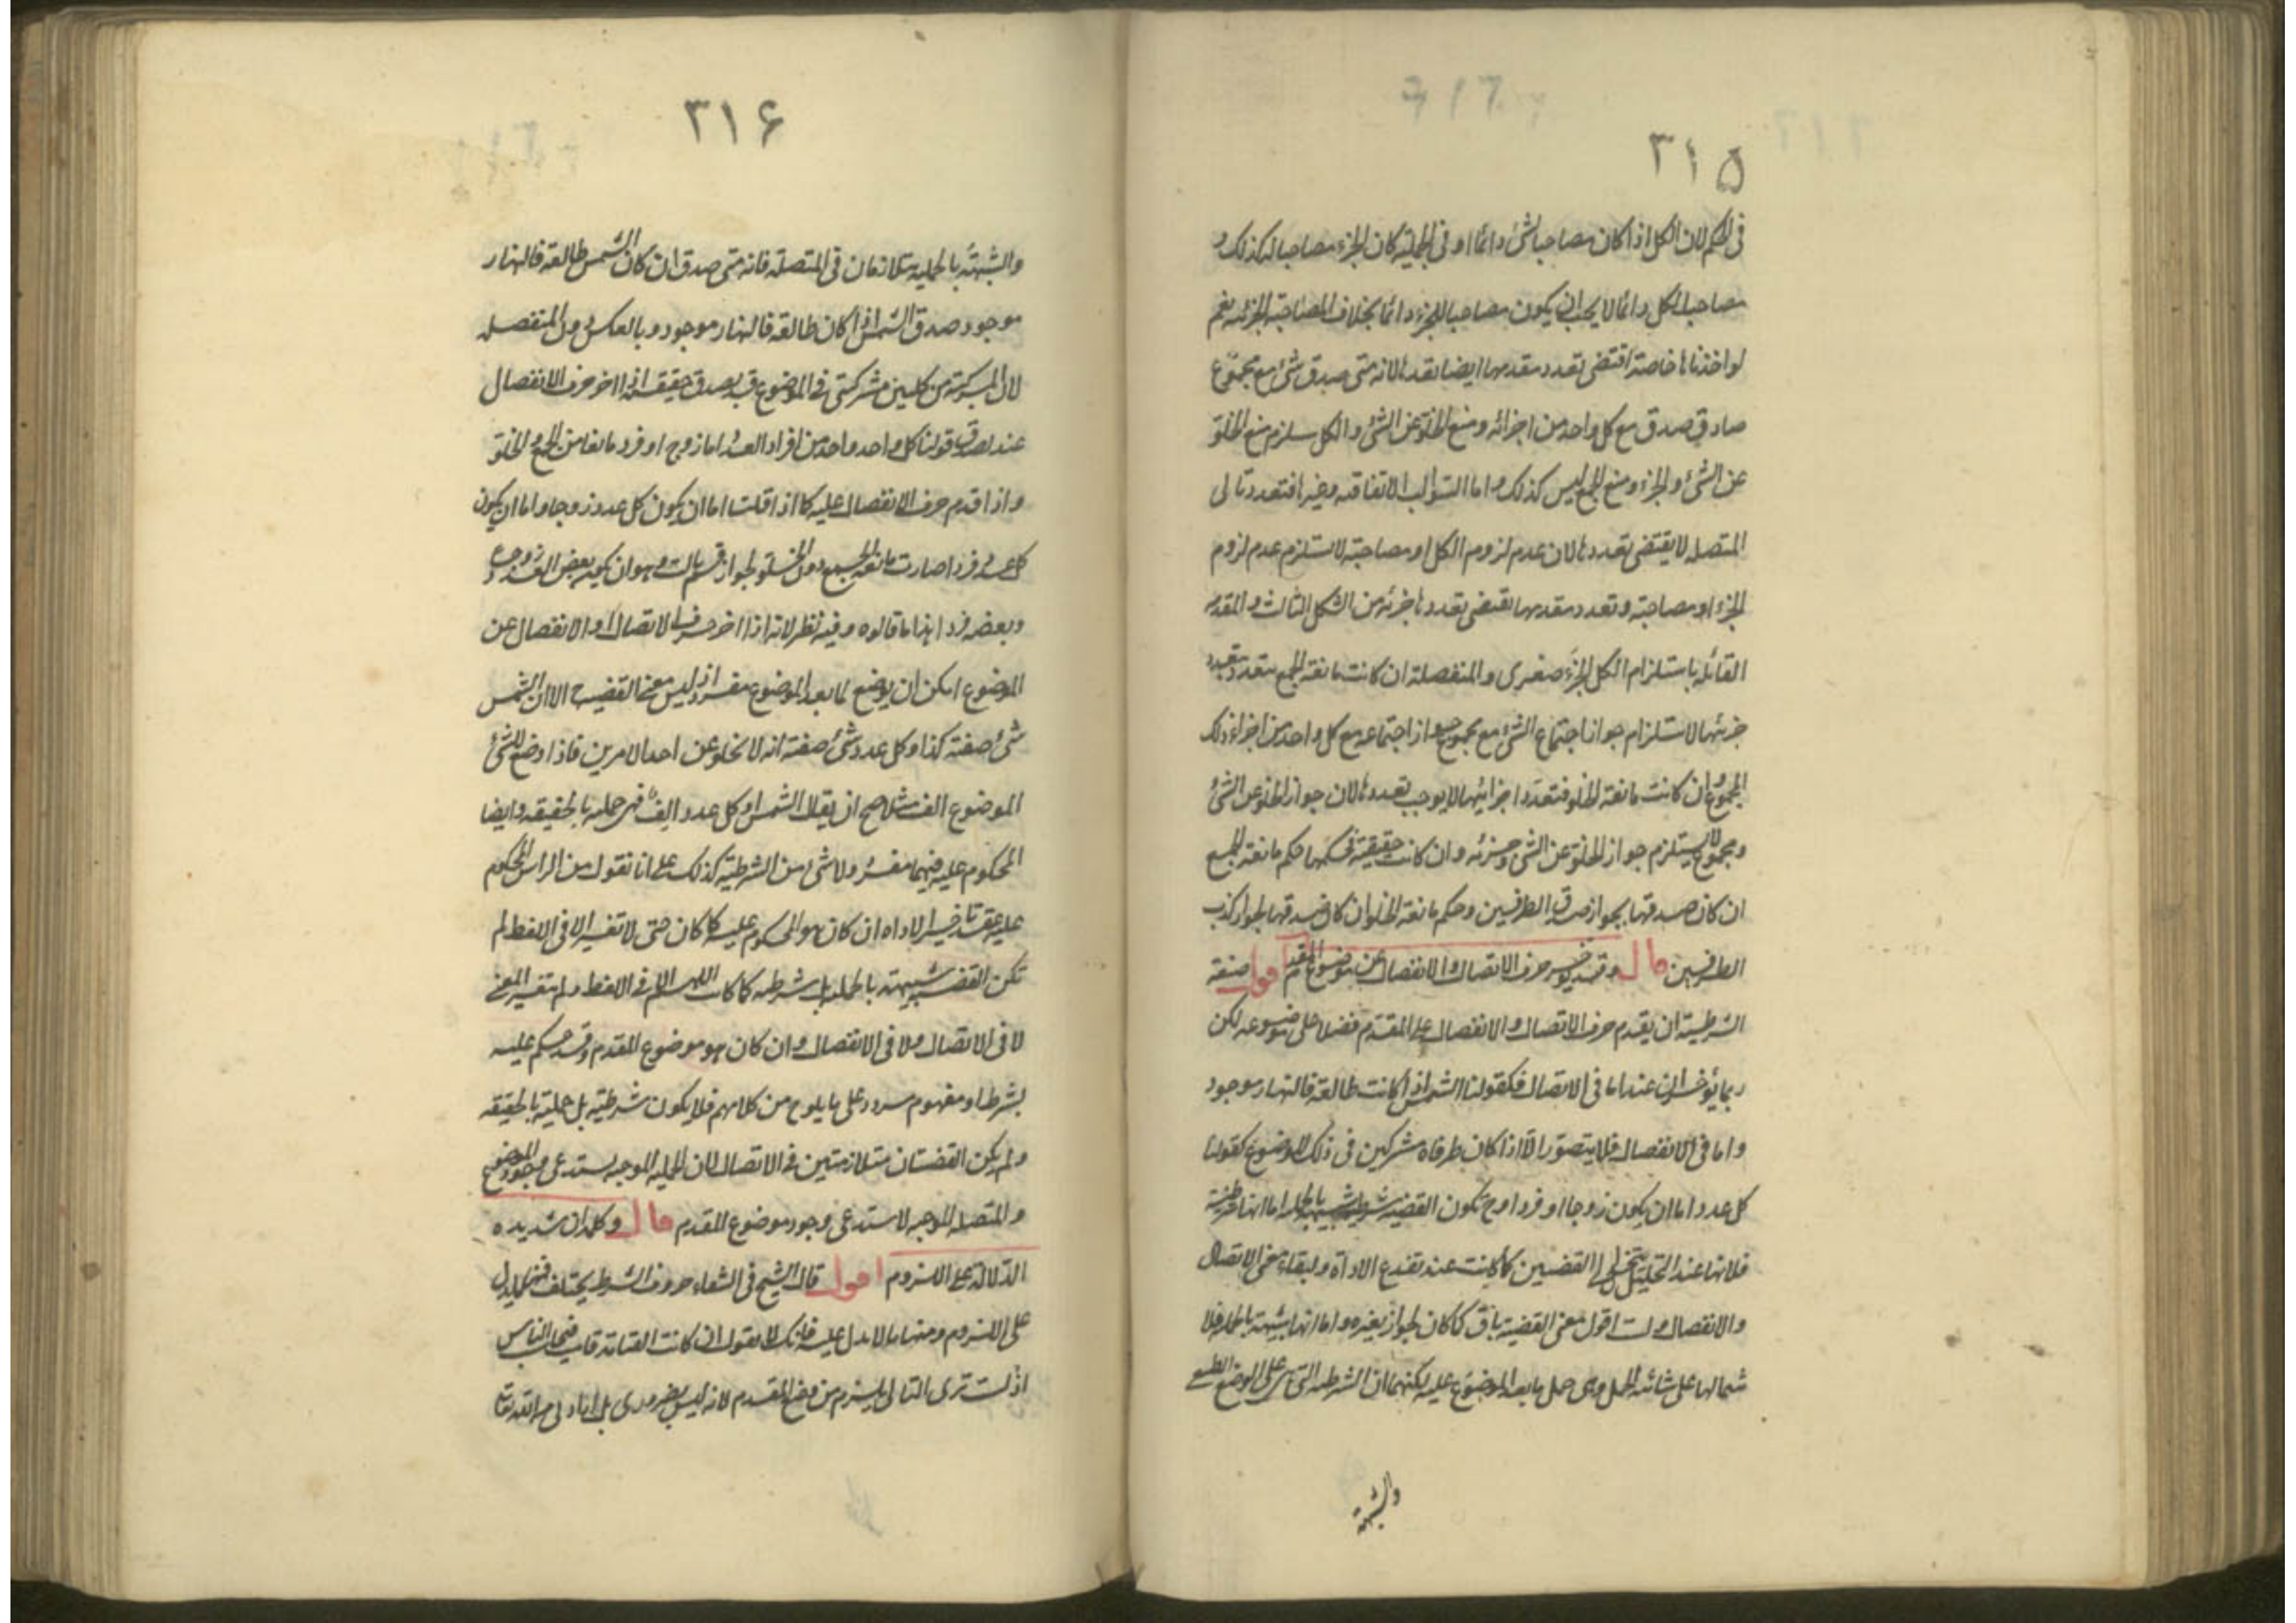 ٣١۵
فى الحكم لان الكل اذا كان مصاحبا لشئ دائما او فى الجملة كان الجزء مصاحبا له كذلك و
مصاحب الكل دائما لا يجب ان يكون مصاحبا للجزء دائما بخلاف المصاحبة الجزئية نعم
لو اخذناها خاصة اقتضى تعدد مقدمها ايضا تعددها لانه متى صدق شئ مع مجموع
صادق صدق مع كل واحد من اجزائه ومنع الخلو عن الشئ والكل يستلزم منع الخلو
عن الشئ والجزء ومنع الجمع ليس كذلك واما السوالب الاتفاقية وغيرها فتعدد تالى
المتصلة لا يقتضى تعددها لان عدم لزوم الكل او مصاحبته لا تستلزم عدم لزوم
الجزء او مصاحبته وتعدد مقدمها يقتضى تعددها جزئية من الشكل الثالث والمقدمة
القائلة باستلزام الكل الجزء صغرى والمنفصلة ان كانت مانعة الجمع تتعدد بتعدد
جزئيها لاستلزام جواز اجتماع الشئ مع مجموع جواز اجتماعه مع كل واحد من اجزاء ذلك
المجموع وان كانت مانعة الخلو فتعدد اجزائها لا يوجب تعددها لان جواز الخلو عن الشئ
ومجموع لا يستلزم جواز الخلو عن الشئ وجزئه وان كانت حقيقية فحكمها حكم مانعة الجمع
ان كان صدقها بجواز صدق الطرفين وحكم مانعة الخلو ان كان صدقها لجواز كذب
الطرفين قال وقد يؤخر حرف الاتصال والانفصال عن موضوع المقدم اقول صنعة
الشرطية ان يقدم حرف الاتصال والانفصال على المقدم فضلا على موضوعه لكن
ربما يؤخران عنه اما فى الاتصال فكقولنا الشمس اذا كانت طالعة فالنهار موجود
واما فى الانفصال فلا يتصور الا اذا كان طرفاه مشتركين فى ذلك الموضوع كقولنا
كل عدد اما ان يكون زوجا او فردا وح تكون القضية شرطية شبيهة بالحملية اما انها شرطية
فلانها عند التحليل تنحل الى القضيتين كما كانت عند تقدم الاداة ولبقاء معنى الاتصال
والانفصال ولست اقول معنى القضية باق كما كان لجواز تغيره واما انها شبيهة بالحملية فلا
شتمالها على شائبة الحمل وهى حمل ما بعد الموضوع عليه لكنهما ان الشرطية التى على الوضع الطبيعى
والشبيهة
٣١۶
والشبيهة بالحملية متلازمان فى المتصلة فانه متى صدق ان كان الشمس طالعة فالنهار
موجود صدق الشمس اذا كان طالعة فالنهار موجود وبالعكس دون المنفصلة
لان المركبة من كليين مشتركتى فى الموضوع قد يصدق حقيقة اذا اخر حرف الانفصال
عنه لصدق قولنا كل واحد واحد من افراد العدد اما زوج او فرد مانعا من الجمع والخلو
واذا قدم حرف الانفصال عليه كما اذا قلت اما ان يكون كل عدد زوجا واما ان يكون
كل عدد فردا صارت مانعة الجمع دون الخلو لجواز قسم ثالث وهو ان يكون بعض العدد زوجا
وبعضه فردا هذا ما قالوه وفيه نظر لانه اذا اخر حرف الاتصال او الانفصال عن
الموضوع امكن ان يوضع لما بعد الموضوع مفرد اذ ليس معنى القضية الا ان الشمس
شئ صفته كذا وكل عدد شئ صفته انه لا يخلو عن احد الامرين فاذا وضع للشئ
الموضوع الف مثلا صح ان يقال الشمس او كل عدد الف فهى حملية بالحقيقة وايضا
المحكوم عليه فيهما مفرد ولا شئ من الشرطية كذلك على انا نقول من الراس المحكوم
عليه عند تاخير الاداه ان كان هو المحكوم عليه كما كان حتى لا تغير الا فى اللفظ لم
تكن القضية شبيهة بالحملية بل شرطية كما كانت اللهم الا فى اللفظ ولم يتغير المعنى
لا فى الاتصال ولا فى الانفصال وان كان هو موضوع المقدم وقد حكم عليه
بشرط او مفهوم مردد على ما يلوح من كلامهم فلا يكون شرطية بل حملية بالحقيقة
ولم يكن القضيتان متلازمتين فى الاتصال لان الحملية الموجبة يستدعى وجود الموضوع
والمتصلة الموجبة لا ستدعى وجود موضوع المقدم قال وكلمة ان شديدة
الدلالة على اللزوم اقول قال الشيخ فى الشفاء حروف الشرط يختلف فمنها ما يدل
على اللزوم ومنها ما لا يدل عليه فانك لا تقول ان كانت القيامة قامت فيحاسب الناس
اذ لست ترى التالى يلزم من وضع المقدم لانه ليس بضرورى بل ارادى من الله تعا